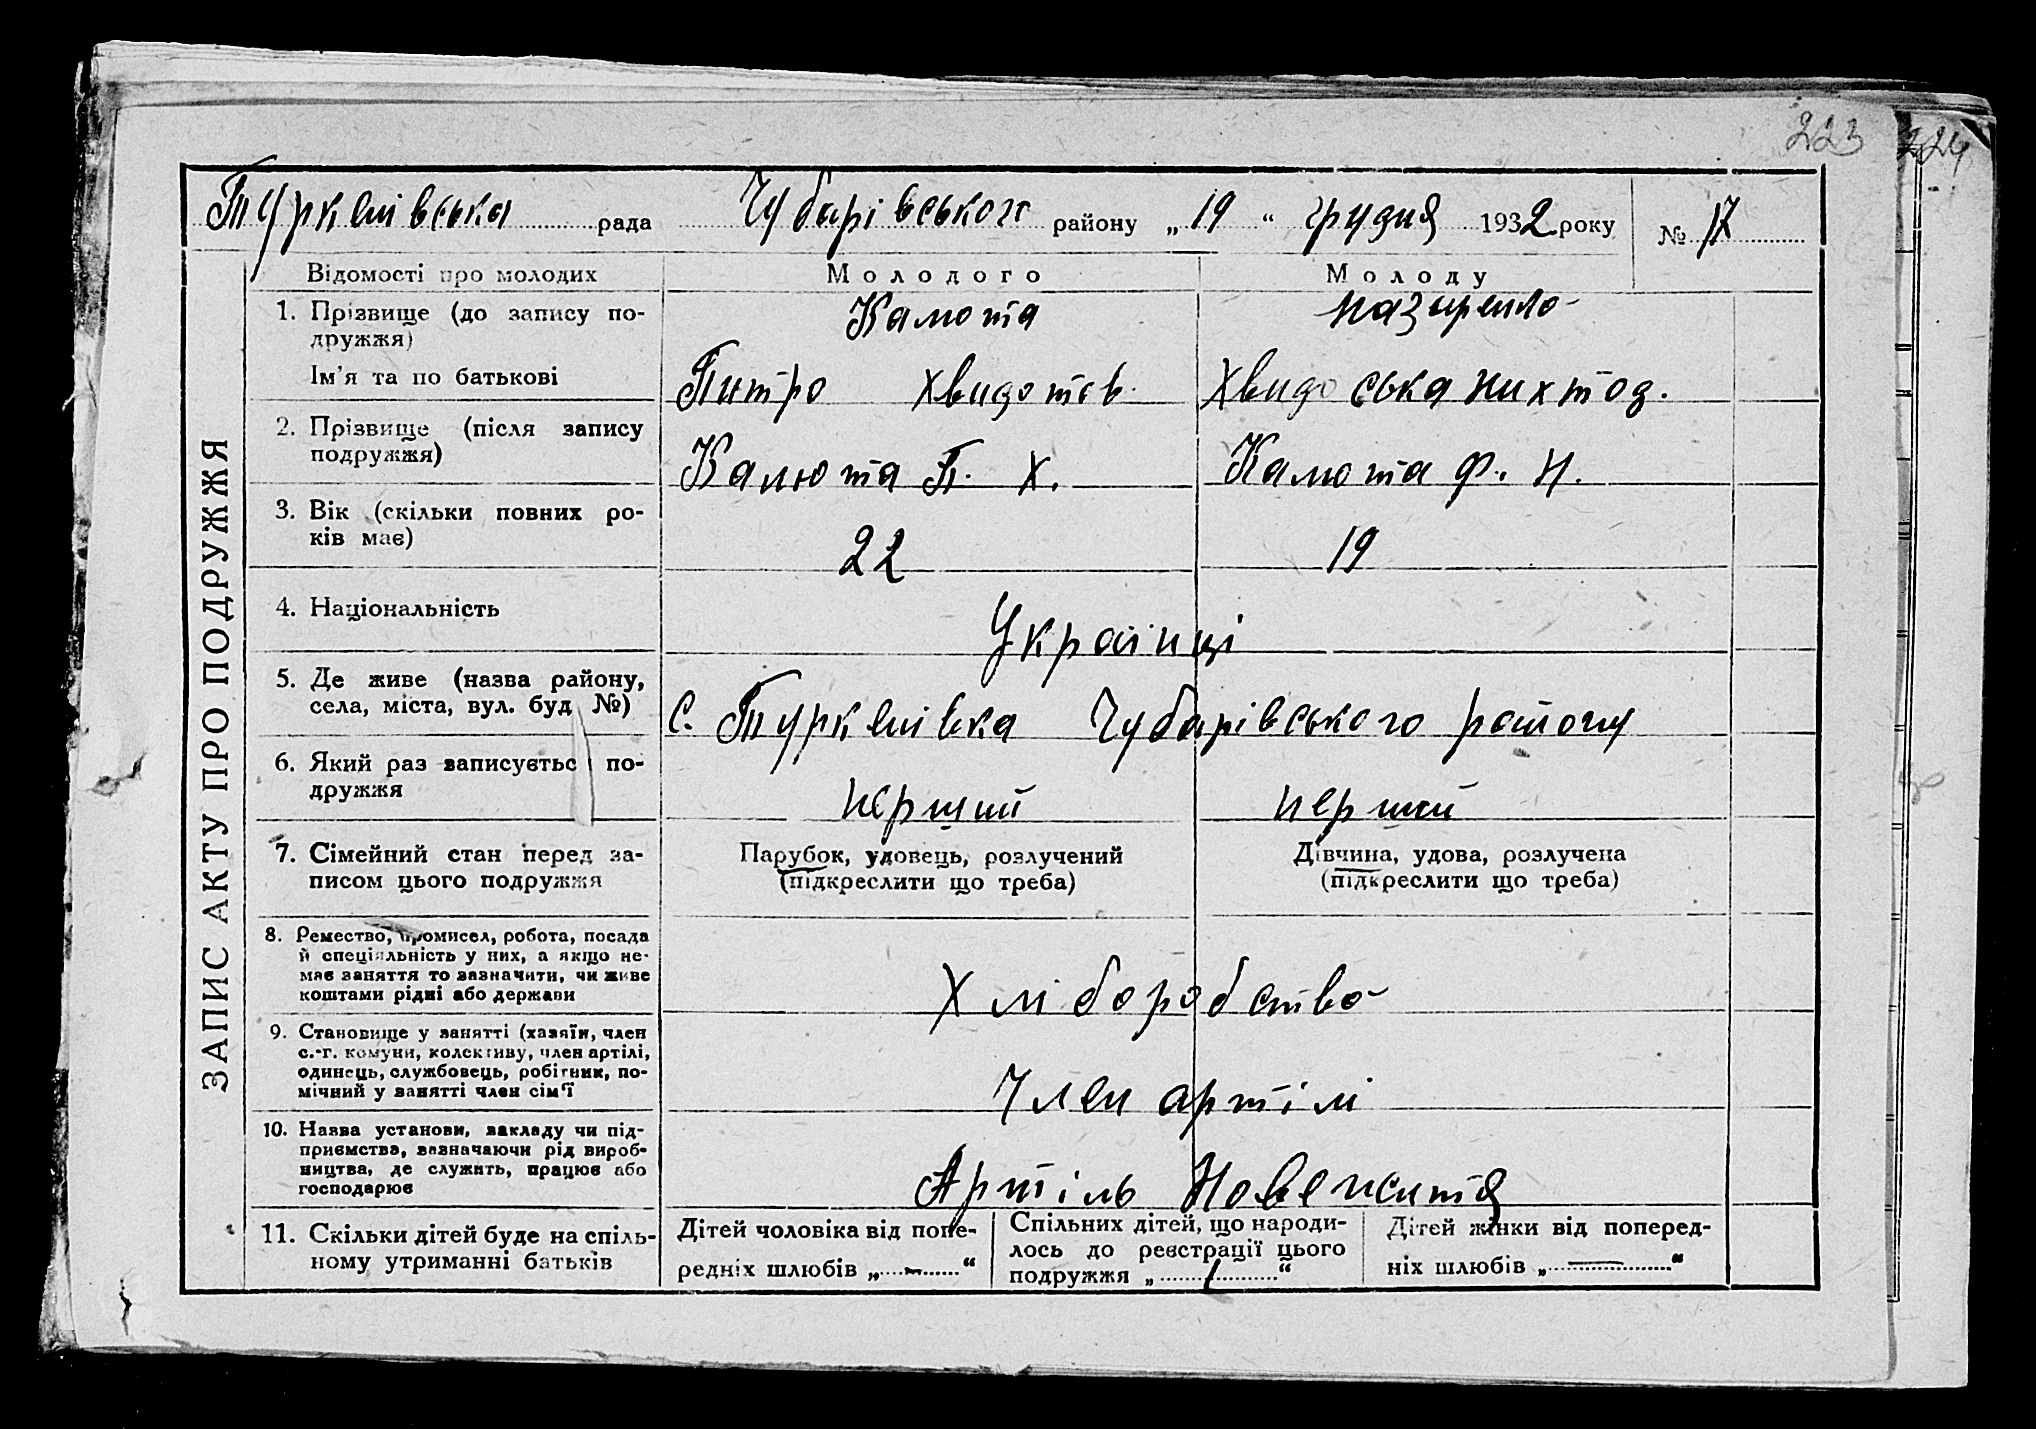 223
224
Туркенівська рада Чубарівського району „19“ грудня 1932 року № 17
ЗАПИС АКТУ ПРО ПОДРУЖЖЯ
Відомості про молодих
Молодого
Молоду
1. Прізвище (до запису по-
дружжя)
Калюта
Назаренко
Ім'я та по батькові
Питро Хвидотов.
Хвидоська Нихтод.
2. Прізвище (після запису
подружжя)
Калюта П. Х.
Калюта Ф. Н.
3. Вік (скільки повних ро-
ків має)
22
19
4. Національність
Українці
5. Де живе (назва району,
села, міста, вул. буд №)
с. Туркенівка Чубарівського району
6. Який раз записуєтьс по-
дружжя
перший
перший
7. Сімейний стан перед за-
писом цього подружжя
Парубок, удовець, розлучений
(підкреслити що треба)
Дівчина, удова, розлучена
(підкреслити що треба)
8. Ремество, промисел, робота, посада
й спеціяльність у них, а якщо не-
має заняття то зазначити, чи живе
коштами рідні або держави
Хліборобство
9. Становище у занятті (хазяїн, член
с.-г. комуни, колективу, член артілі,
одинець, службовець, робітник, по-
мічний у занятті член сім'ї
Член артілі
10. Назва установи, закладу чи під-
приємства, зазначаючи рід вироб-
ництва, де служить, працює або
господарює
Артіль Нове життя
11. Скільки дітей буде на спіль-
ному утриманні батьків
Дітей чоловіка від попе-
редніх шлюбів „—“
Спільних дітей, що народи-
лось до реєстрації цього
подружжя „1“
Дітей жінки від поперед-
ніх шлюбів „—“